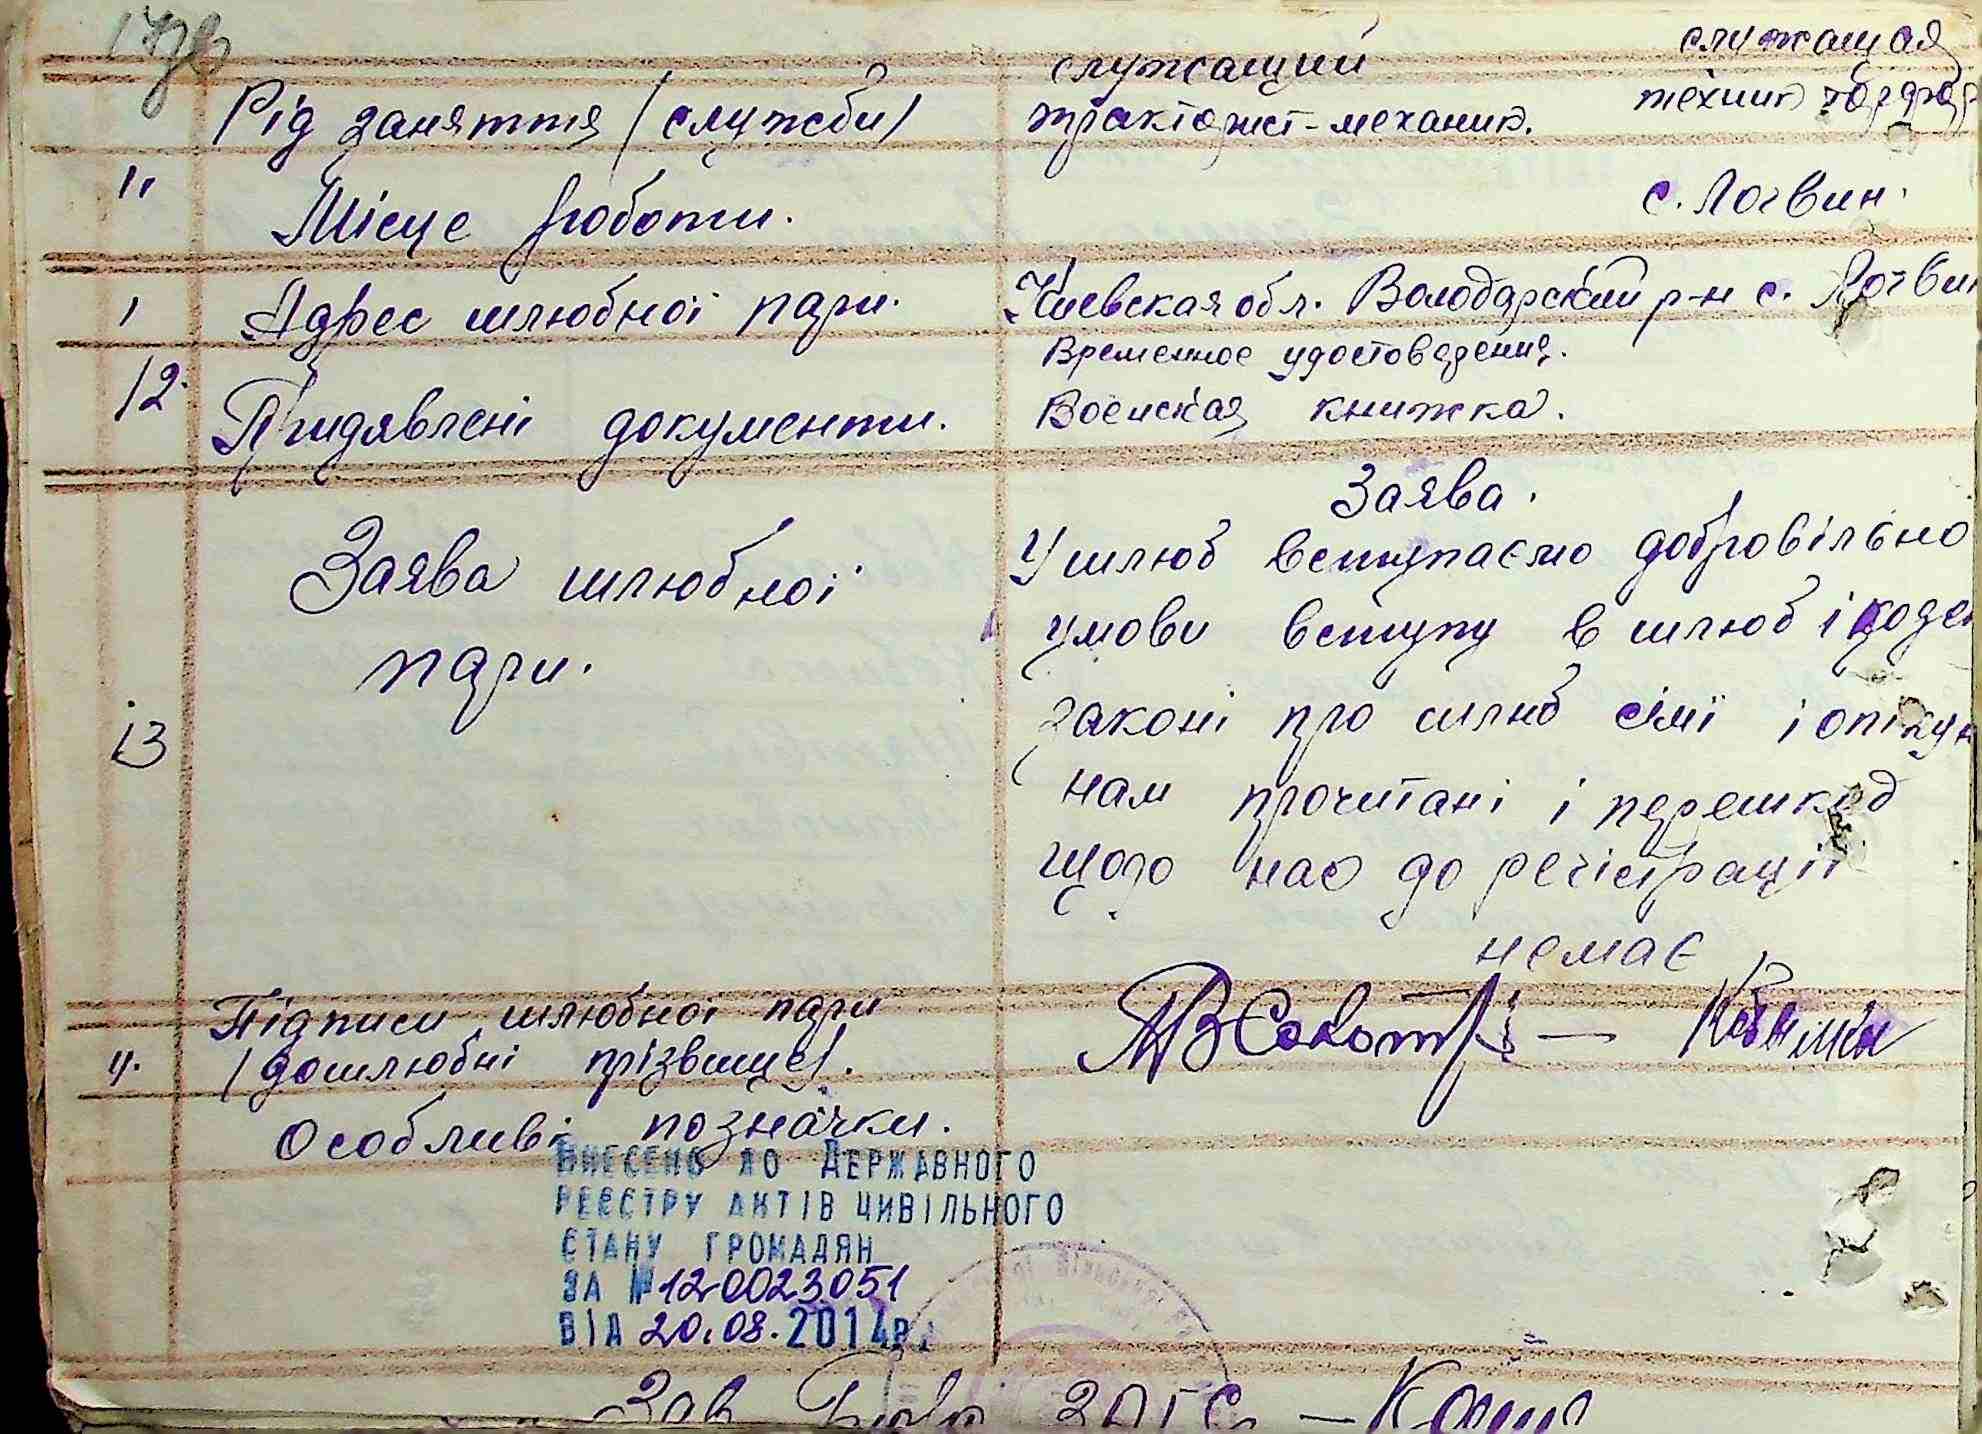 служащий служащая
Рід заняття (служби) тракторист-механик. техник
11 Місце роботи. с. Логвин.
1 Адрес шлюбної пари. Киевская обл. Володарский р-н с. Логвин
Временное удостоверение.
12 Предявлені документи. Воєнская книжка.
Заява.
Заява шлюбної У шлюб вступаємо добровільно
умови вступу в шлюб і
пари.
13 законі про шлюб сімї і опіку
нам прочитані і перешкод
щодо нас до регістрації
немає
Підписи шлюбної пари
ч. (дошлюбні прізвище).
Особливі позначки.
ВНЕСЕНО ДО ДЕРЖАВНОГО
РЕЄСТРУ АКТІВ ЦИВІЛЬНОГО
СТАНУ ГРОМАДЯН
ЗА № 120023051
ВІД 20.08.2014р.
Зав Бюро ЗАГС —